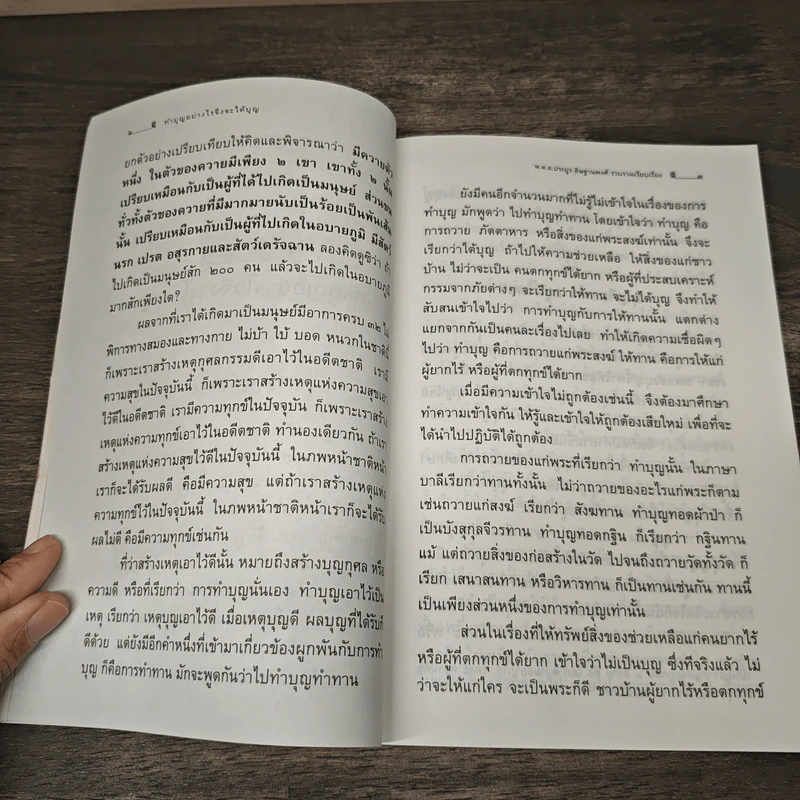 ๒ ทำบุญอย่างไรจึงจะได้บุญ
ยกตัวอย่างเปรียบเทียบให้คิดและพิจารณาว่า มีควายตัว
หนึ่ง ในตัวของควายมีเพียง ๒ เขา เขาทั้ง ๒ นั้น
เปรียบเหมือนกับเป็นผู้ที่ได้ไปเกิดเป็นมนุษย์ ส่วนขน
ทั่วทั้งตัวของควายที่มีมากมายนับเป็นร้อยเป็นพันเส้น
นั้น เปรียบเหมือนกับเป็นผู้ที่ไปเกิดในอบายภูมิ มีสัตว์
นรก เปรต อสุรกายและสัตว์เดรัจฉาน ลองคิดดูซิว่า ถ้า
ไปเกิดเป็นมนุษย์สัก ๒๐๐ คน แล้วจะไปเกิดในอบายภูมิ
มากสักเพียงใด?
ผลจากที่เราได้เกิดมาเป็นมนุษย์มีอาการครบ ๓๒ ไม่
พิการทางสมองและทางกาย ไม่บ้า ใบ้ บอด หนวกในชาตินี้
ก็เพราะเราสร้างเหตุกุศลกรรมดีเอาไว้ในอดีตชาติ เรามี
ความสุขในปัจจุบันนี้ ก็เพราะเราสร้างเหตุแห่งความสุขเอา
ไว้ดีในอดีตชาติ เรามีความทุกข์ในปัจจุบัน ก็เพราะเราสร้าง
เหตุแห่งความทุกข์เอาไว้ในอดีตชาติ ทำนองเดียวกัน ถ้าเรา
สร้างเหตุแห่งความสุขไว้ดีในปัจจุบันนี้ ในภพหน้าชาติหน้า
เราก็จะได้รับผลดี คือมีความสุข แต่ถ้าเราสร้างเหตุแห่ง
ความทุกข์ไว้ในปัจจุบันนี้ ในภพหน้าชาติหน้าเราก็จะได้รับ
ผลไม่ดี คือมีความทุกข์เช่นกัน
ที่ว่าสร้างเหตุเอาไว้ดีนั้น หมายถึงสร้างบุญกุศล หรือ
ความดี หรือที่เรียกว่า การทำบุญนั่นเอง ทำบุญเอาไว้เป็น
เหตุ เรียกว่า เหตุบุญเอาไว้ดี เมื่อเหตุบุญดี ผลบุญที่ได้รับก็
ดีด้วย แต่ยังมีอีกคำหนึ่งที่เข้ามาเกี่ยวข้องผูกพันกับการทำ
บุญ ก็คือการทำทาน มักจะพูดกันว่าไปทำบุญทำทาน
พ.ต.อ.ประยูร ดิษฐานพงศ์ รวบรวมเรียบเรียง ๓
ยังมีคนอีกจำนวนมากที่ไม่รู้ไม่เข้าใจในเรื่องของการ
ทำบุญ มักพูดว่า ไปทำบุญทำทาน โดยเข้าใจว่า ทำบุญ คือ
การถวาย ภัตตาหาร หรือสิ่งของแก่พระสงฆ์เท่านั้น จึงจะ
เรียกว่าได้บุญ ถ้าไปให้ความช่วยเหลือ ให้สิ่งของแก่ชาว
บ้าน ไม่ว่าจะเป็น คนตกทุกข์ได้ยาก หรือผู้ที่ประสบเคราะห์
กรรมจากภัยต่างๆ จะเรียกว่าให้ทาน จะไม่ได้บุญ จึงทำให้
สับสนเข้าใจไปว่า การทำบุญกับการให้ทานนั้น แตกต่าง
แยกจากกันเป็นคนละเรื่องไปเลย ทำให้เกิดความเชื่อผิดๆ
ไปว่า ทำบุญ คือการถวายแก่พระสงฆ์ ให้ทาน คือการให้แก่
ผู้ยากไร้ หรือผู้ที่ตกทุกข์ได้ยาก
เมื่อมีความเข้าใจไม่ถูกต้องเช่นนี้ จึงต้องมาศึกษา
ทำความเข้าใจกัน ให้รู้และเข้าใจให้ถูกต้องเสียใหม่ เพื่อที่จะ
ได้นำไปปฏิบัติได้ถูกต้อง
การถวายของแก่พระที่เรียกว่า ทำบุญนั้น ในภาษา
บาลีเรียกว่าทานทั้งนั้น ไม่ว่าถวายของอะไรแก่พระก็ตาม
เช่นถวายแก่สงฆ์ เรียกว่า สังฆทาน ทำบุญทอดผ้าป่า ก็
เป็นบังสุกุลจีวรทาน ทำบุญทอดกฐิน ก็เรียกว่า กฐินทาน
แม้ แต่ถวายสิ่งของก่อสร้างในวัด ไปจนถึงถวายวัดทั้งวัด ก็
เรียก เสนาสนทาน หรือวิหารทาน ก็เป็นทานเช่นกัน ทานนี้
เป็นเพียงส่วนหนึ่งของการทำบุญเท่านั้น
ส่วนในเรื่องที่ให้ทรัพย์สิ่งของช่วยเหลือแก่คนยากไร้
หรือผู้ที่ตกทุกข์ได้ยาก เข้าใจว่าไม่เป็นบุญ ซึ่งที่จริงแล้ว ไม่
ว่าจะให้แก่ใคร จะเป็นพระก็ดี ชาวบ้านผู้ยากไร้หรือตกทุกข์